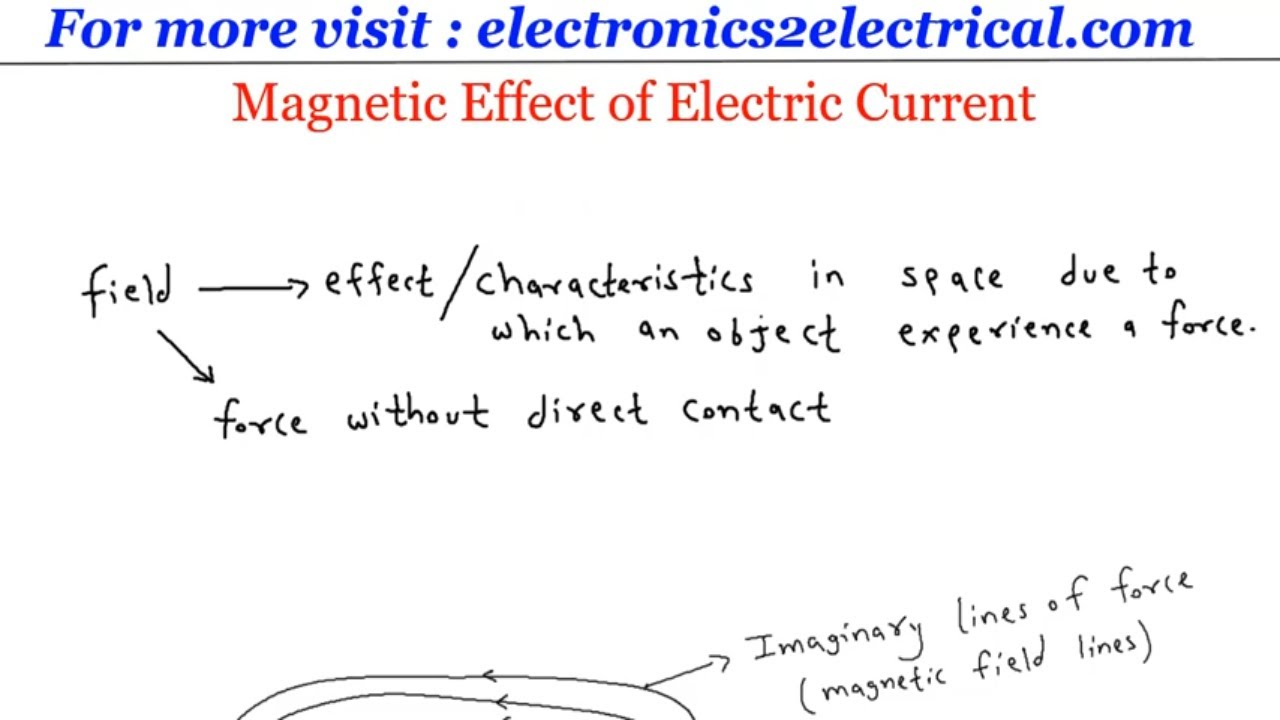 For more visit : electronics2electrical.com
Magnetic Effect of Electric Current
field → effect/characteristics in space due to
which an object experience a force.
force without direct contact
Imaginary lines of force
(magnetic field lines)